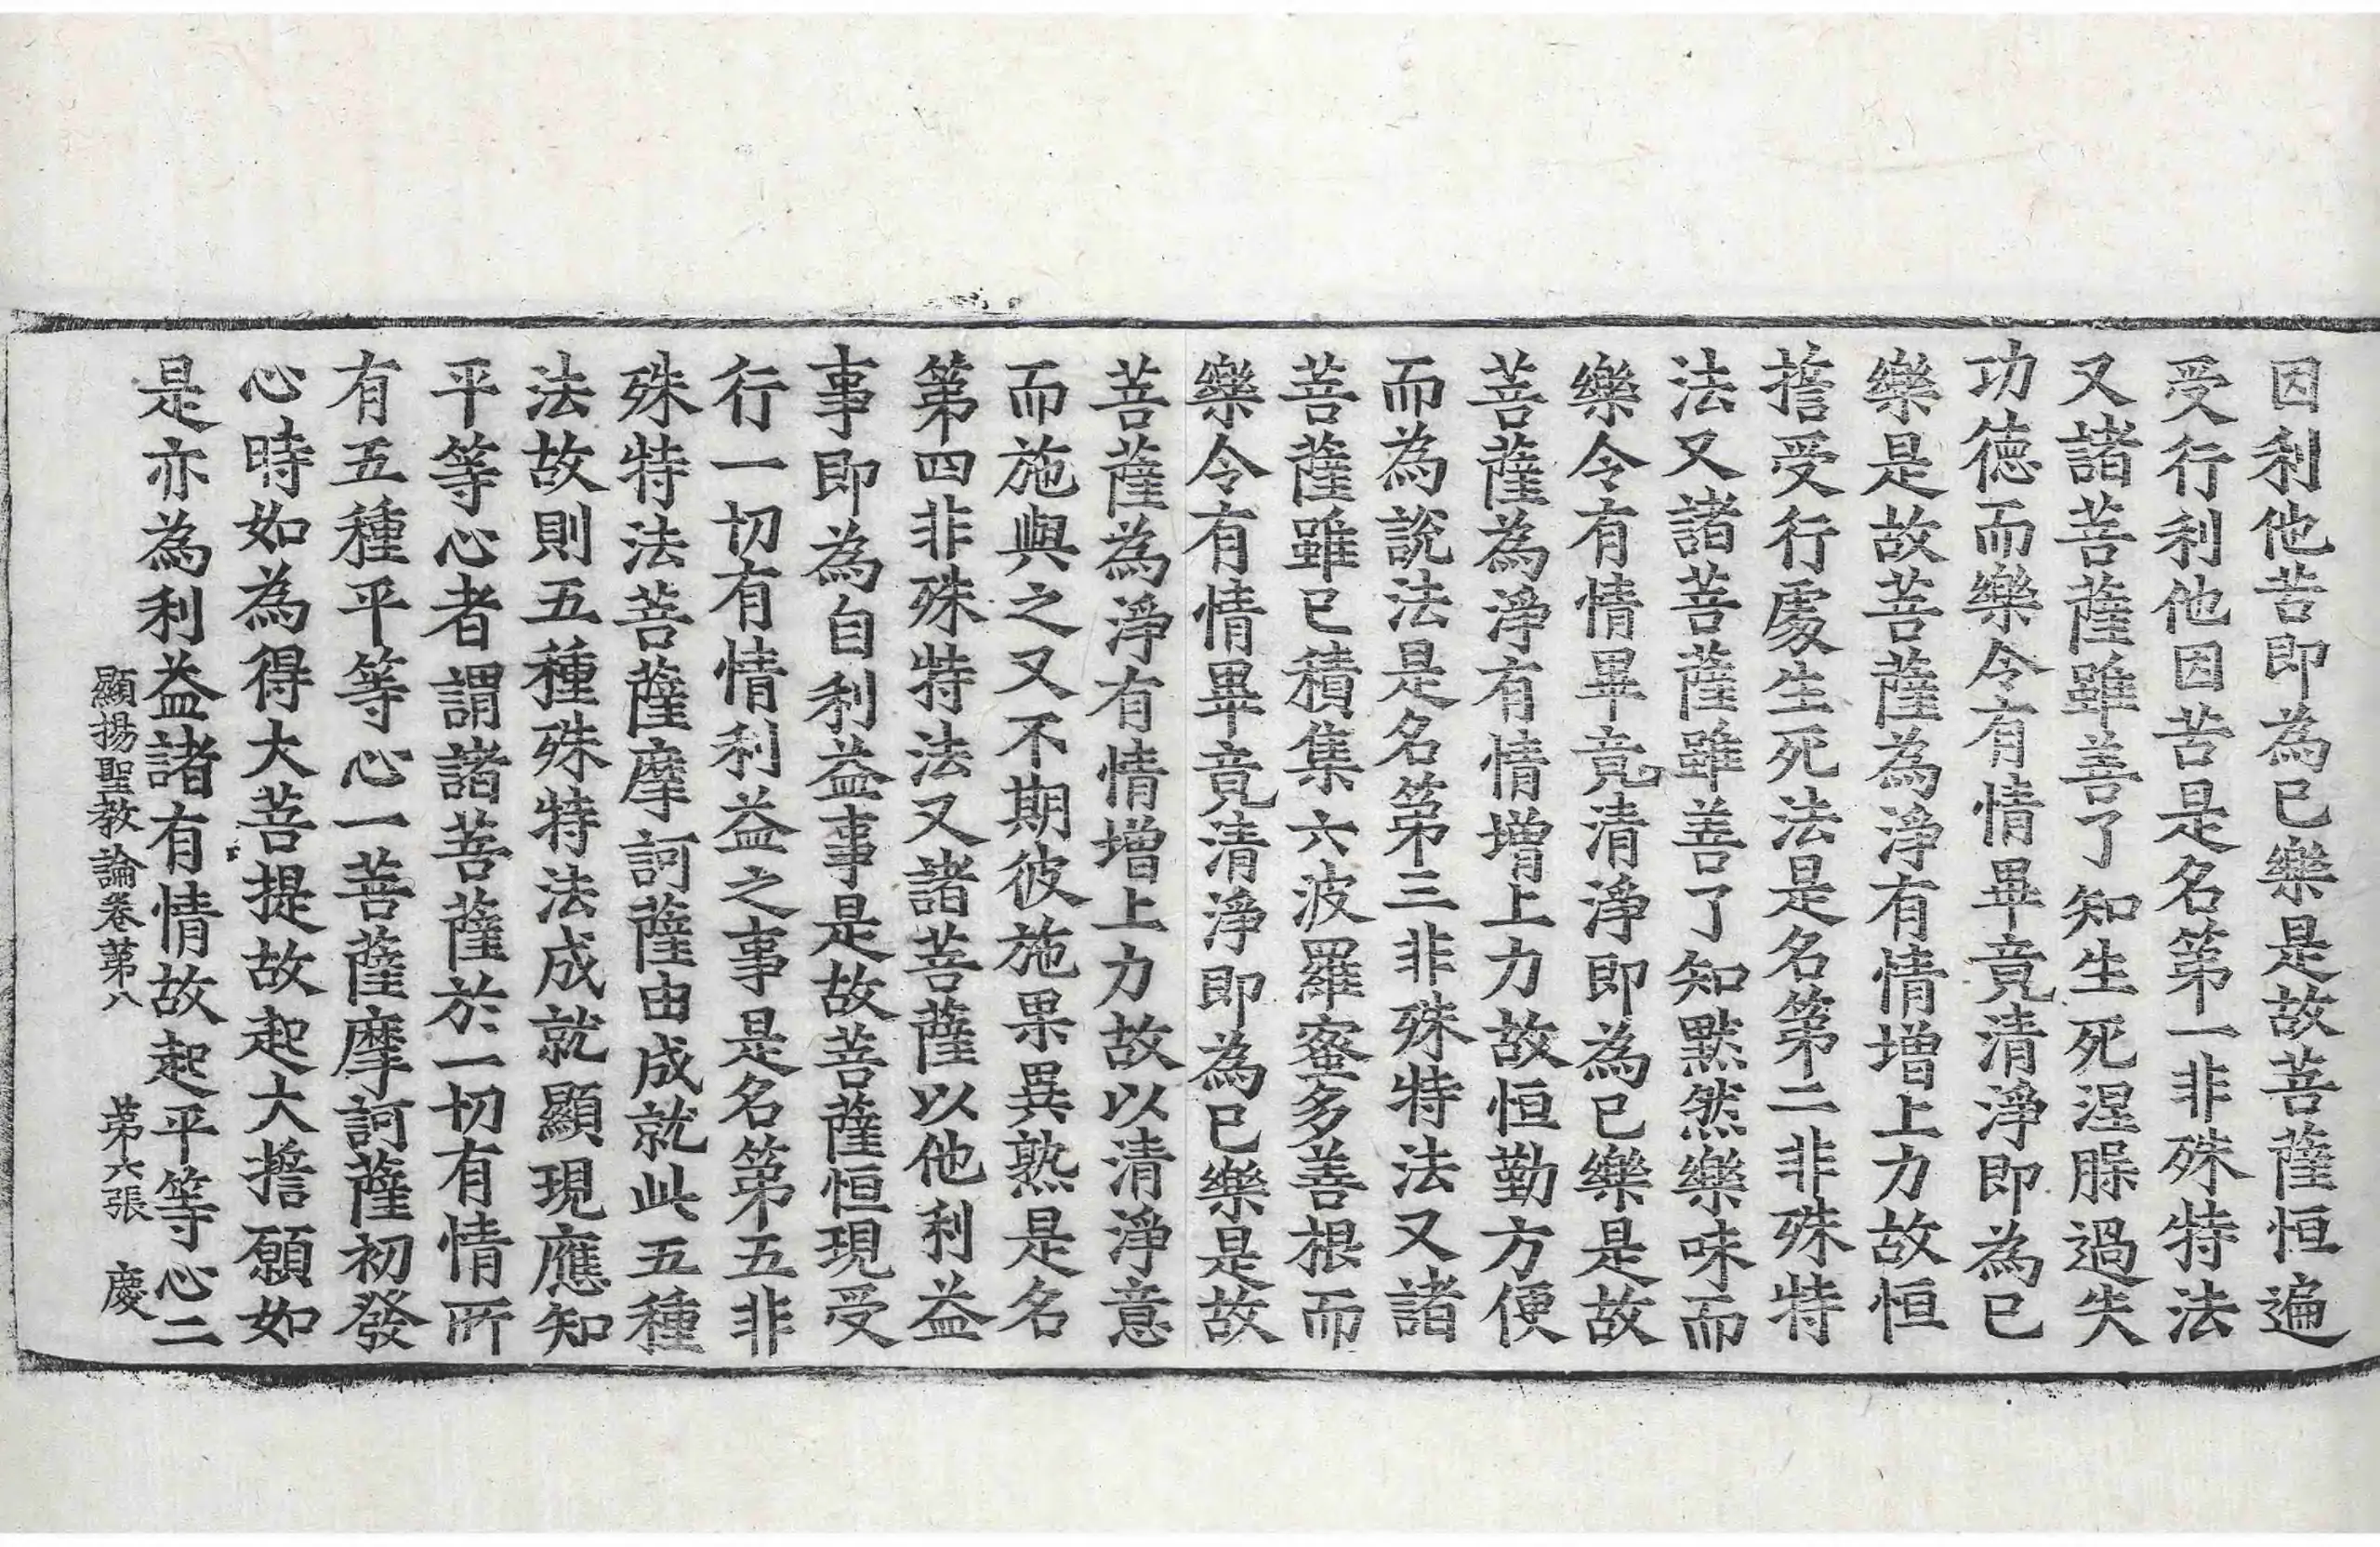 因利他苦即為已樂是故菩薩恒遍
受行利他因苦是名第一非殊特法
又諸菩薩雖善了知生死涅槃過失
功德而樂令有情畢竟清淨即為已
樂是故菩薩為淨有情增上力故恒
擔受行處生死法是名第二非殊特
法又諸菩薩雖善了知黙然樂味而
樂令有情畢竟清淨即為已樂是故
菩薩為淨有情增上力故恒勤方便
而為說法是名第三非殊特法又諸
菩薩雖已積集六波羅蜜多善根而
樂令有情畢竟清淨即為已樂是故
菩薩為淨有情增上力故以清淨意
而施與之又不期彼施果異熟是名
第四非殊特法又諸菩薩以他利益
事即為自利益事是故菩薩恒現受
行一切有情利益之事是名第五非
殊特法菩薩摩訶薩由成就此五種
法故則五種殊特法成就顯現應知
平等心者謂諸菩薩於一切有情所
有五種平等心一菩薩摩訶薩初發
心時如為得大菩提故起大擔願如
是亦為利益諸有情故起平等心二
顯揚聖教論卷第八　第六張　慶